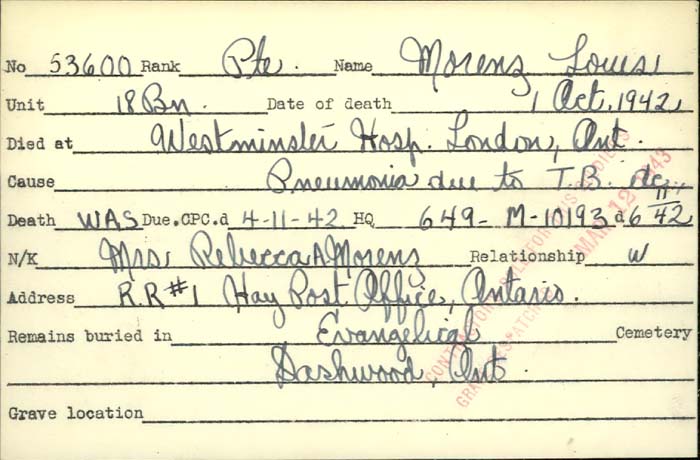 No 53600 Rank Pte. Name Morenz Louis
Unit 18 Bn. Date of death 1 Oct. 1942
Died at Westminster Hosp. London, Ont.
Cause Pneumonia due to T.B. etc.
Death WAS Due. CPC.d 4-11-42 HQ 649-M-10193 d 6 11 42
N/K Mrs Rebecca A Morenz Relationship W
Address R.R #1 Hay Post Office, Ontario.
Remains buried in Evangelical Cemetery
Dashwood, Ont.
Grave location
MAR 12 1943